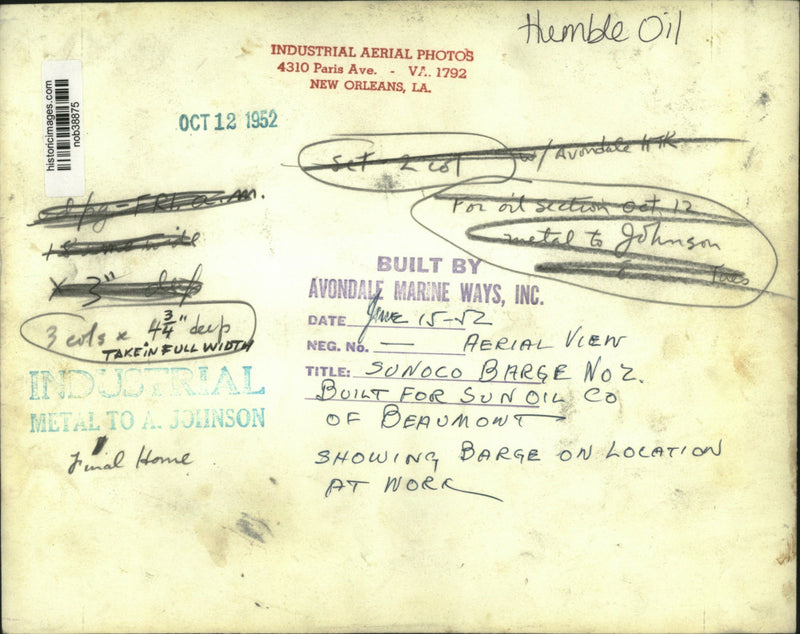 Humble Oil
INDUSTRIAL AERIAL PHOTOS
4310 Paris Ave. - VA. 1792
NEW ORLEANS, LA.
historicimages.com
nob38875
OCT 12 1952
Set - 2 col w/ Avondale
For oil section Oct. 12
metal to Johnson
FRI. a.m.
wide
x 3" deep
3 cols x 4 3/4" deep
TAKE IN FULL WIDTH
INDUSTRIAL
METAL TO A. JOHNSON
Final Home
BUILT BY
AVONDALE MARINE WAYS, INC.
DATE June 15-52
NEG. No. — AERIAL VIEW
TITLE: SUNOCO BARGE NO 2.
BUILT FOR SUN OIL CO
OF BEAUMONT
SHOWING BARGE ON LOCATION
AT WORK